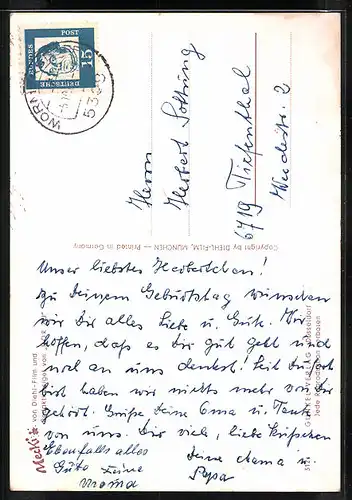 DEUTSCHE
BUNDES
POST
15
WORMS
Herrn
Herbert
6719 Tiefenthal
2
Copyright by DIEHL-FILM, MÜNCHEN — Printed in Germany
Unser liebstes Herbertchen!
Zu Deinem Geburtstag wünschen
wir Dir alles Liebe u. Gute. Wir
hoffen, dass es Dir gut geht und
mal an uns denkst! Seit Du fort
bist haben wir nichts mehr von Dir
gehört. Grüße Deine Oma u. Tante
von uns. Dir viele, liebe Küsschen
Deine Mama u.
Papa
Ebenfalls alles
Gute Deine
Mecki
von Diehl-Film und